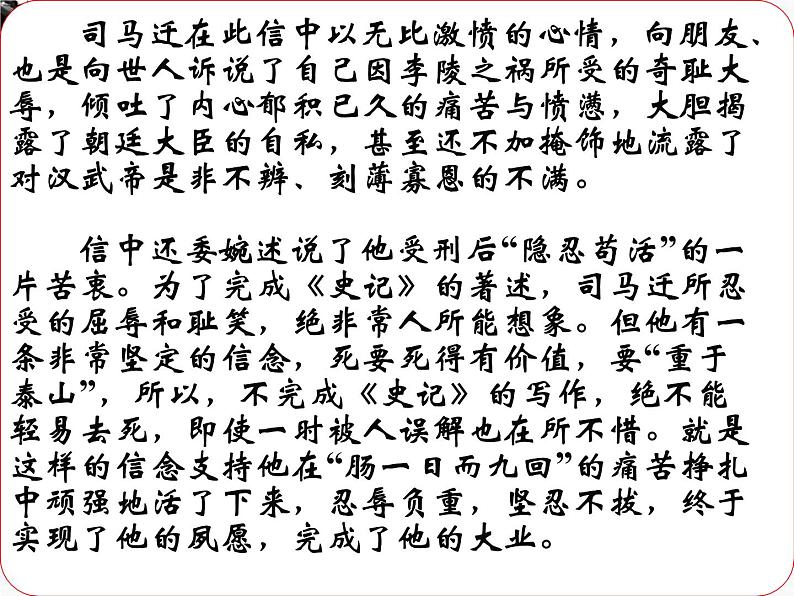 司马迁在此信中以无比激愤的心情，向朋友、
也是向世人诉说了自己因李陵之祸所受的奇耻大
辱，倾吐了内心郁积已久的痛苦与愤懑，大胆揭
露了朝廷大臣的自私，甚至还不加掩饰地流露了
对汉武帝是非不辨、刻薄寡恩的不满。
信中还委婉述说了他受刑后“隐忍苟活”的一
片苦衷。为了完成《史记》的著述，司马迁所忍
受的屈辱和耻笑，绝非常人所能想象。但他有一
条非常坚定的信念，死要死得有价值，要“重于
泰山”，所以，不完成《史记》的写作，绝不能
轻易去死，即使一时被人误解也在所不惜。就是
这样的信念支持他在“肠一日而九回”的痛苦挣扎
中顽强地活了下来，忍辱负重，坚忍不拔，终于
实现了他的夙愿，完成了他的大业。